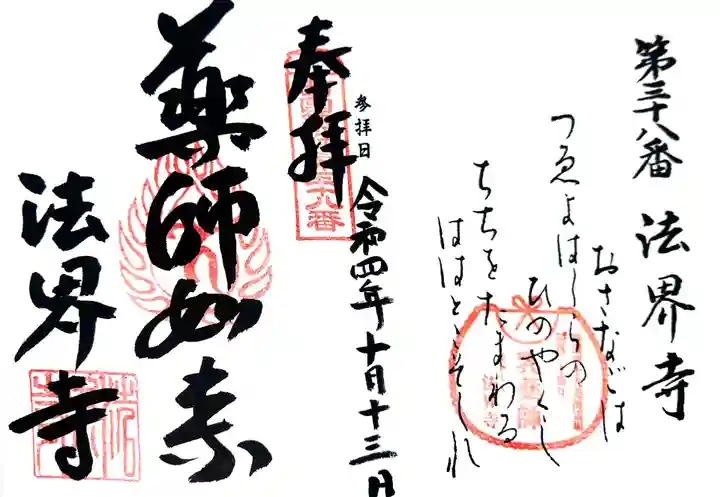 第三十八番 法界寺
おさなごは
つゑよはしらの
ひのやくし
ちちをたまわる
ははとこそしれ
奉拝
参拝日 令和四年十月十三日
薬師如来
法界寺